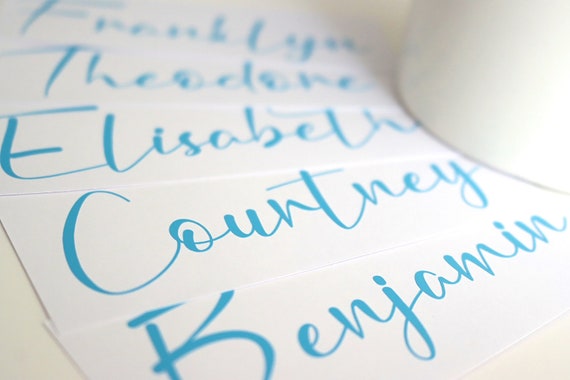 Franklyn
Theodore
Elisabeth
Courtney
Benjamin